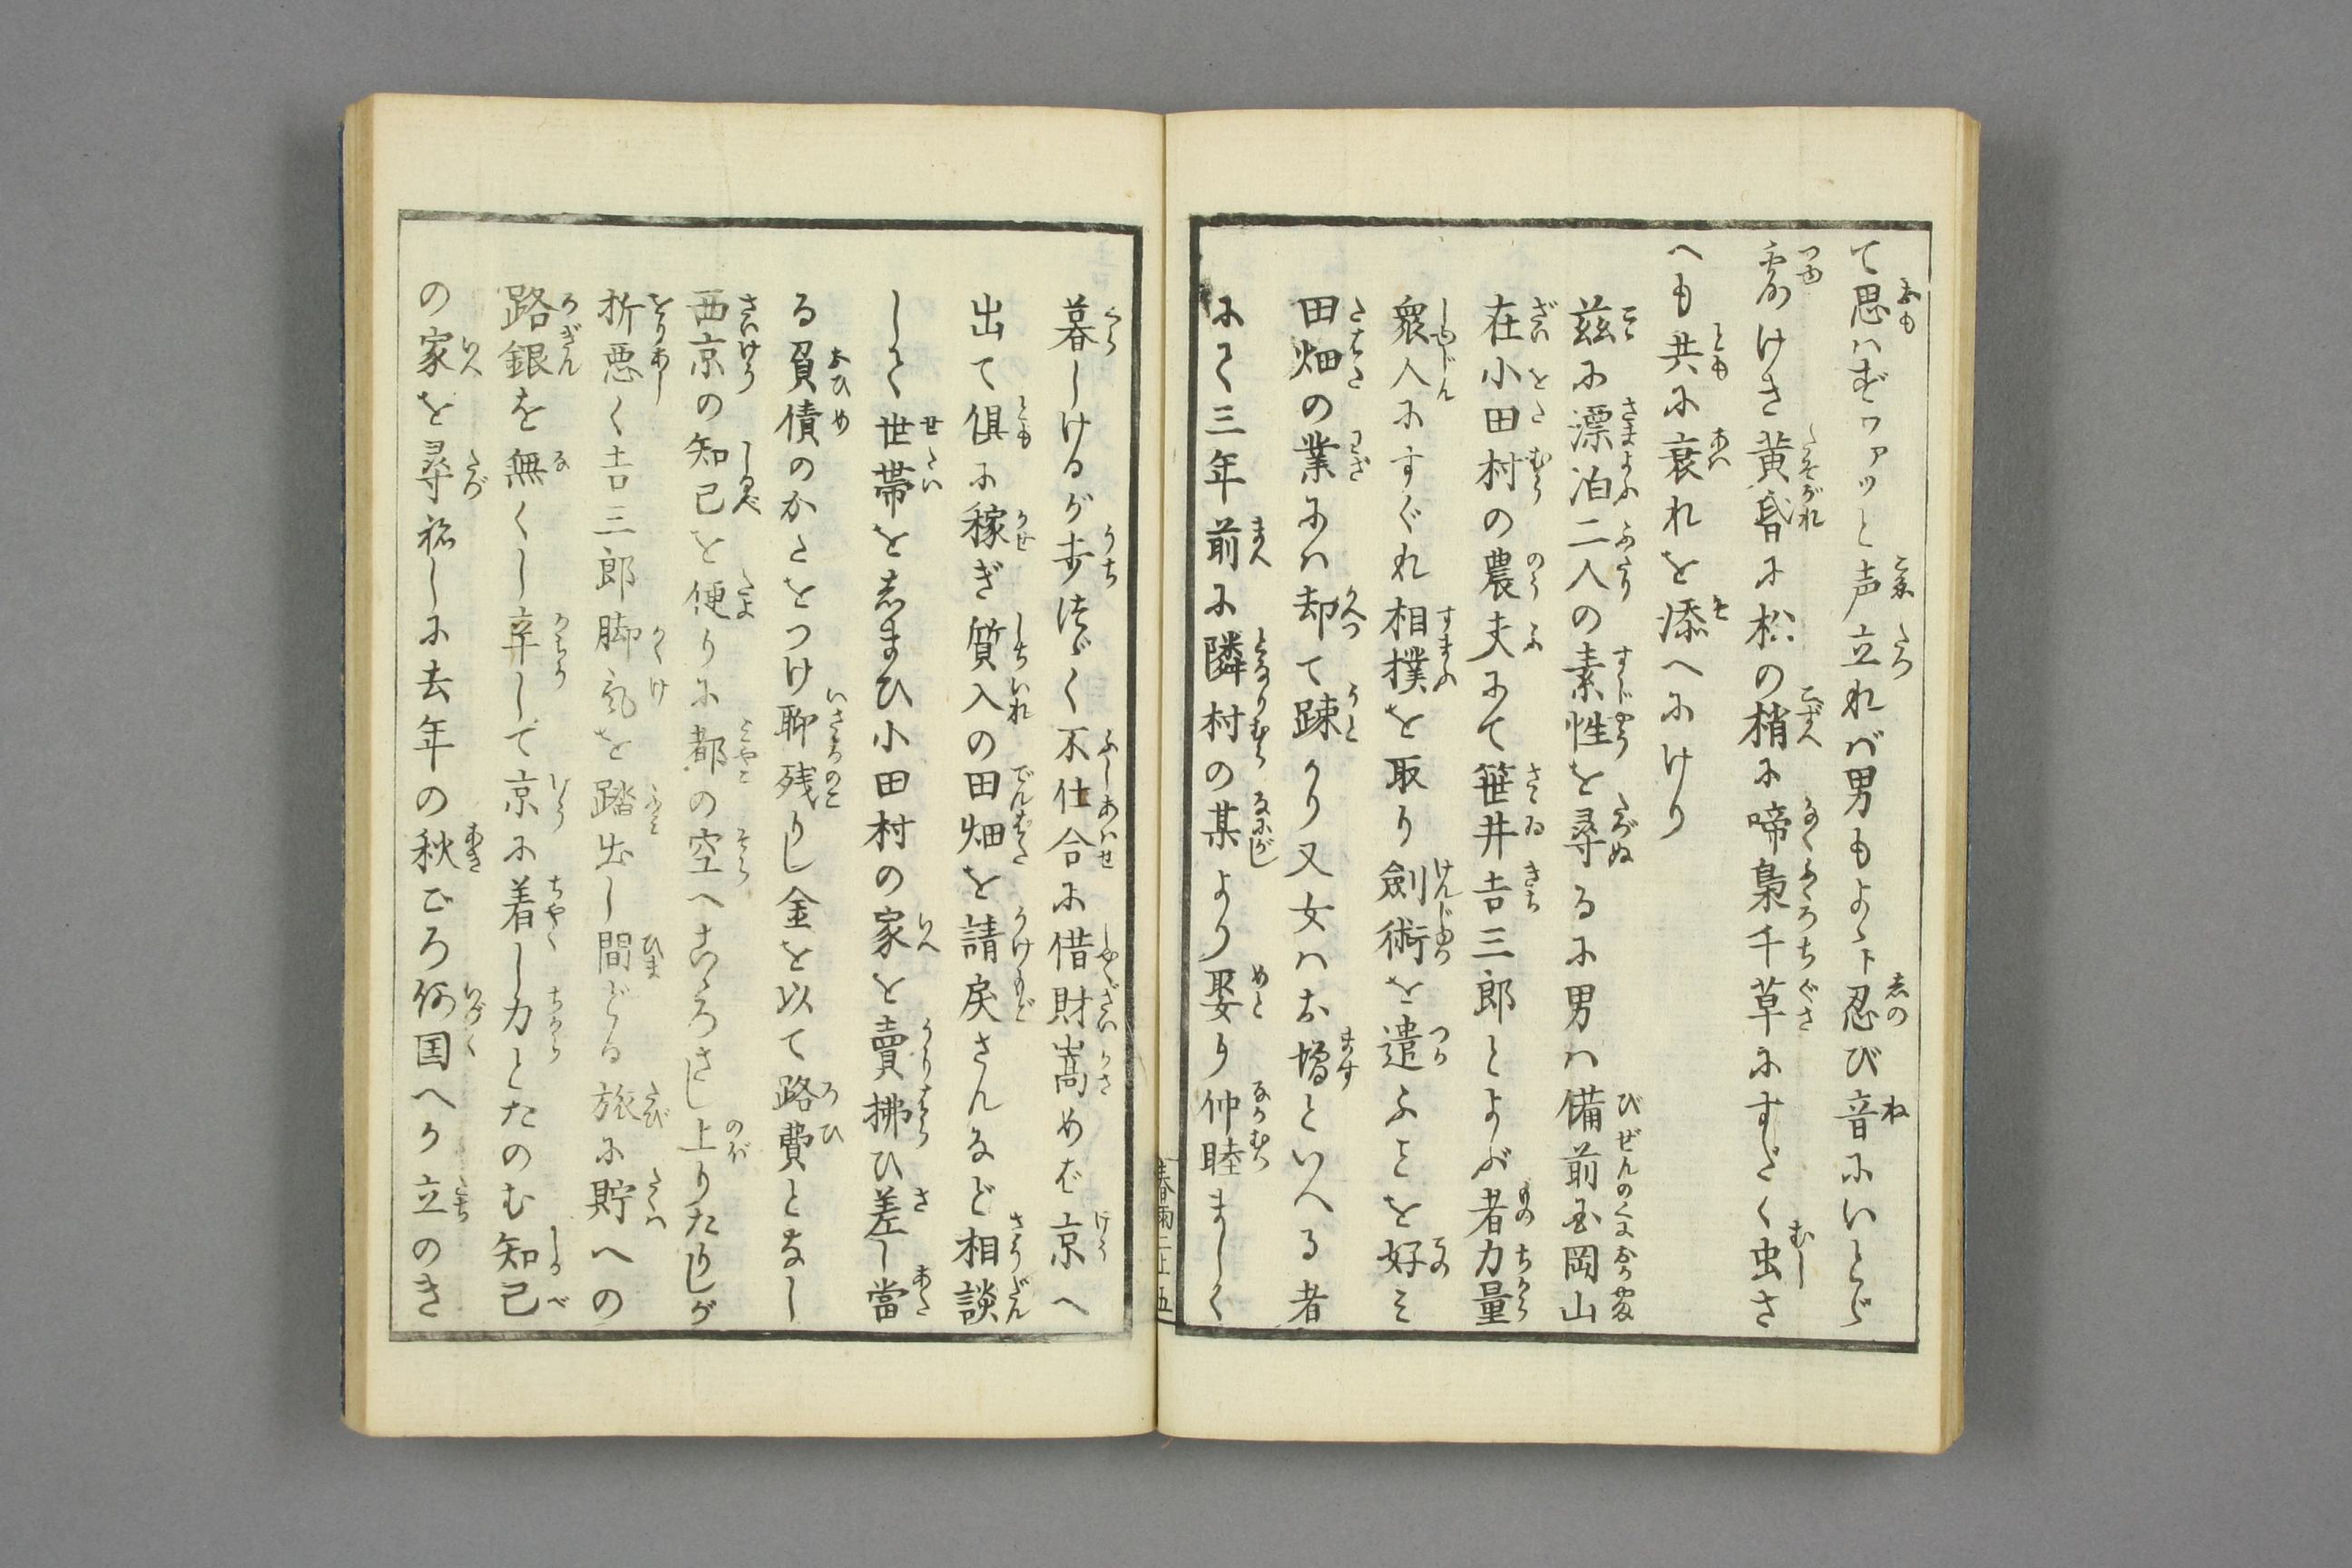 て思ハずワアツと声立れバ男もよゝト忍び音にいとゞ
露けき黄昏に松の梢に啼梟千草にすだく虫さ
へも共に哀れを添へにけり
茲に漂泊二人の素性を尋るに男ハ備前国岡山
在小田村の農夫にて笹井吉三郎とよぶ者力量
衆人にすぐれ相撲を取り劍術を遣ふことを好み
田畑の業にハ却て疎かり又女ハお増といへる者
にて三年前に隣村の某より娶り仲睦ましく
春雨二上 五
暮しけるが歩つゞく不仕合に借財嵩めば京へ
出て倶に稼ぎ質入の田畑を請戻さんなど相談
して世帯をしまひ小田村の家を賣拂ひ差し當
る負債のかたをつけ聊残りし金を以て路費となし
西京の知己を便りに都の空へこゝろざし上りたりしが
折悪く吉三郎脚気を踏出し間どる旅に貯への
路銀を無くし辛して京に着し力とたのむ知己
の家を尋ねしに去年の秋ごろ何国へか立のき